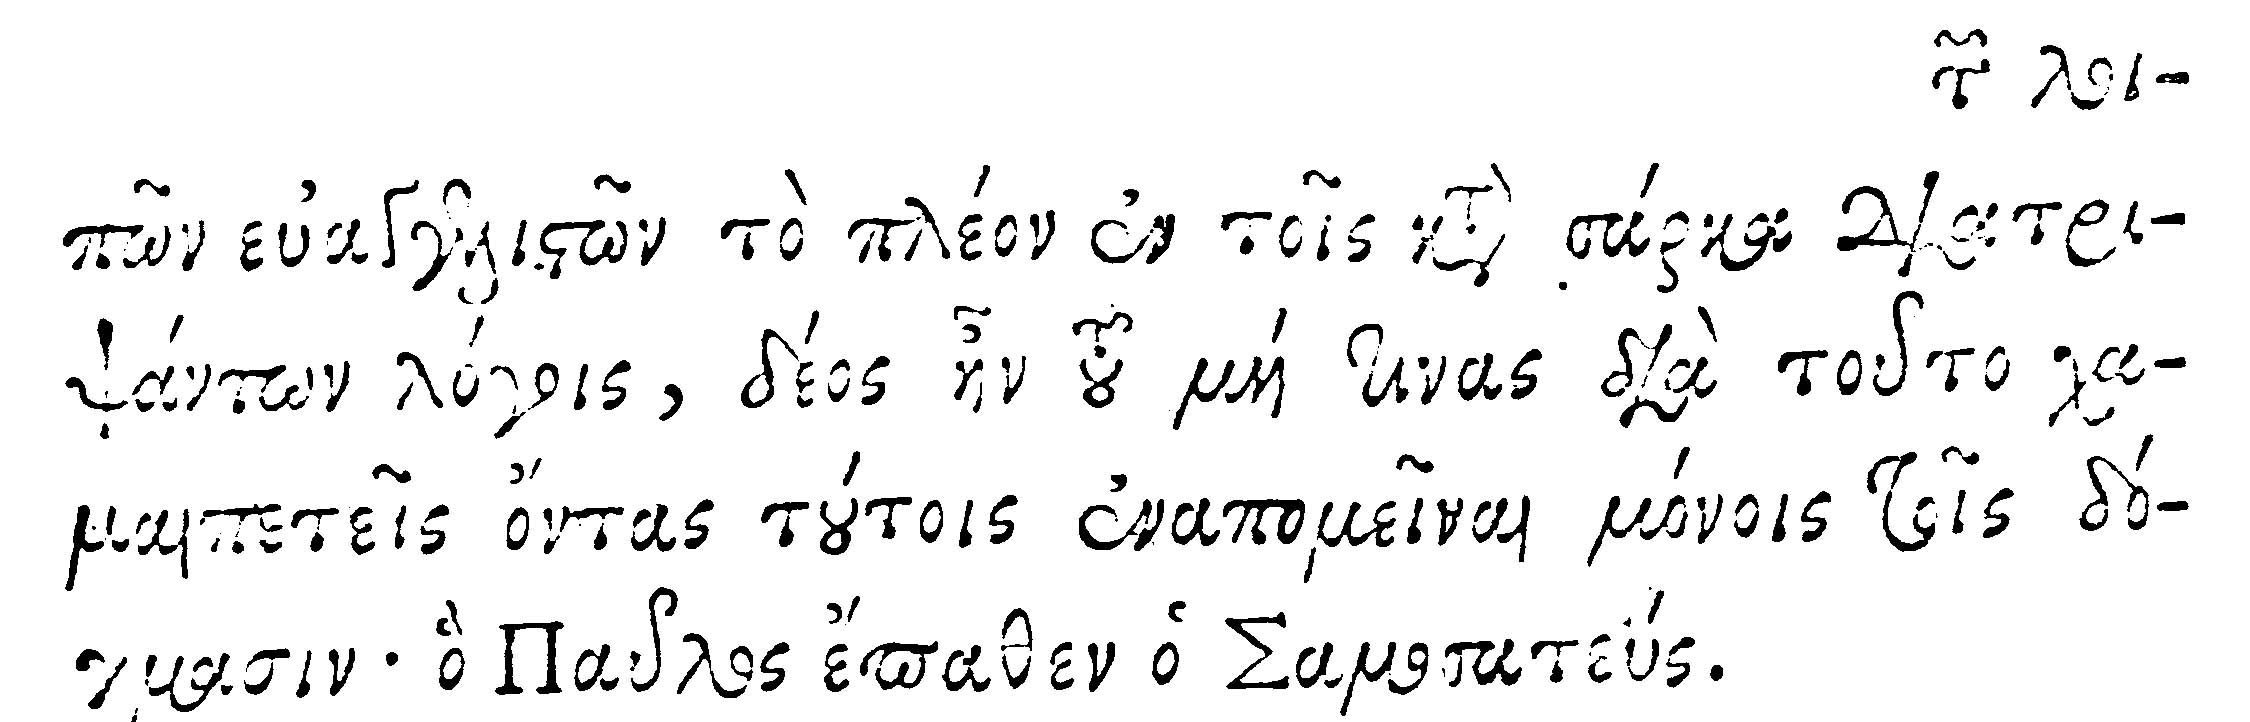 τῶν λοι-
πῶν εὐαγγελιστῶν τὸ πλέον ἐν τοῖς κατὰ σάρκα διατρι-
ψάντων λόγοις, δέος ἦν τοῦ μή τινας διὰ τοῦτο χα-
μαιπετεῖς ὄντας τούτοις ἐναπομεῖναι μόνοις τοῖς δό-
γμασιν· ὃ Παῦλος ἔπαθεν ὁ Σαμοσατεύς.